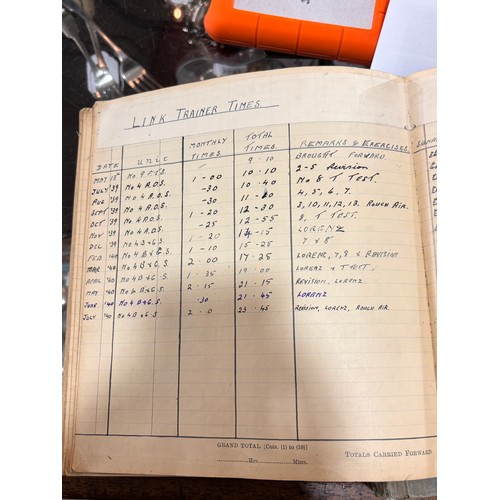 LINK TRAINER TIMES
DATE UNIT MONTHLY TIMES TOTAL TIMES REMARKS & EXERCISES
9 · 10 BROUGHT FORWARD
MAY 15 No 9 F.T.S. 1 - 00 10 · 10 2-5 Revision
JULY '39 No 4 A.O.S. -30 10 · 40 No 8 T TEST
AUG '39 No 4 A.O.S. -30 4, 5, 6, 7.
SEPT '39 No 4 A.O.S. 1 - 20 12 - 30 3, 10, 11, 12, 13. ROUGH AIR.
OCT '39 No 4 A.O.S. -25 12 - 55 8, T TEST.
NOV '39 No 4 A.O.S. 1 - 20 14 - 15 LORENZ
DEC '39 No 4 B & G.S. 1 - 10 15 - 25 7 & 8
FEB '40 No 4 B & G.S. 2 · 00 17 - 25 LORENZ, 7, 8 & REVISION
MAR '40 No 4 B & G.S. 1 · 35 19 · 00 LORENZ & T TEST.
APRIL '40 No 4 B & G.S. 2 · 15 21 · 15 REVISION, LORENZ.
MAY '40 No 4 B & G.S. · 30 21 · 45 LORENZ
JUNE '40 No 4 B & G.S. 2 · 0 23 · 45 REVISION, LORENZ, ROUGH AIR.
JULY '40 No 4 B & G.S.
GRAND TOTAL [Cols. (1) to (10)]
Hrs. Mins.
TOTALS CARRIED FORWARD